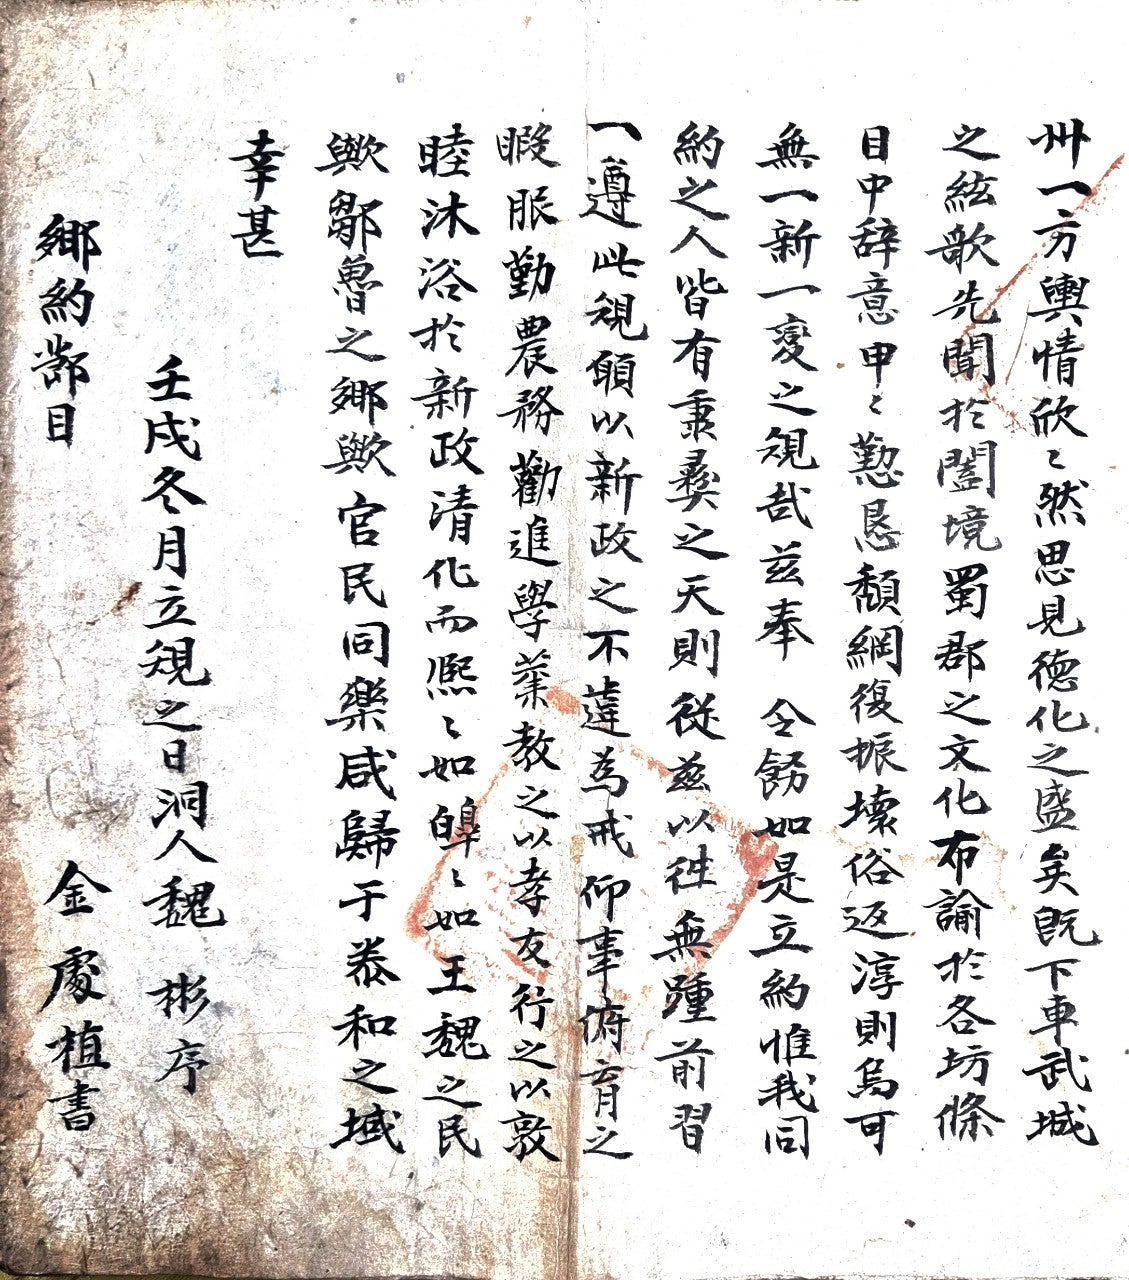 卅一方輿情欣〻然思見德化之盛矣旣下車武城
之絃歌先聞於闔境蜀郡之文化布諭於各坊條
目中辞意申〻懃恳頹綱復振壞俗返淳則烏可
無一新一変之規哉玆奉 令飭如是立約惟我同
約之人皆有秉彝之天則従玆以徃無踵前習
一遵此規願以新政之不達為戒仰事俯育之
暇服勤農務勸進學業教之以孝友行之以敦
睦沐浴於新政清化而熈〻如皥〻如王魏之民
歟鄒魯之鄉歟官民同樂咸歸于泰和之域
幸甚
壬戌冬月立規之日洞人魏 彬序
鄉約節目 金處植書